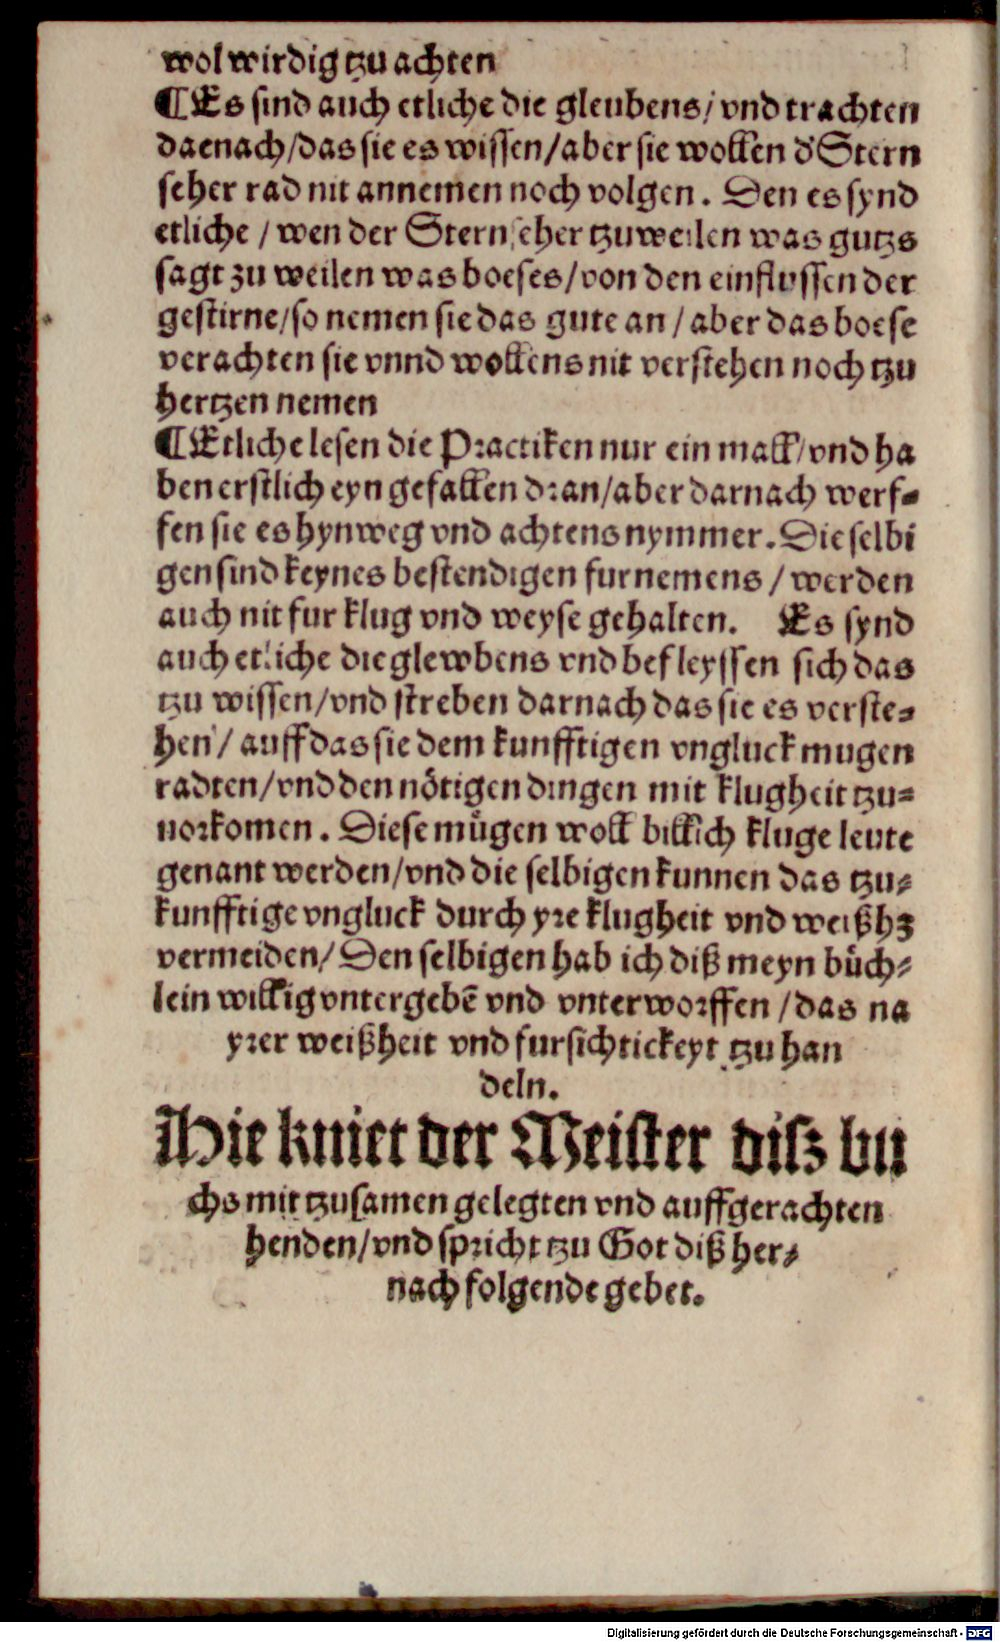 wol wirdig tzu achten
¶Es sind auch etliche die gleubens/ vnd trachten
daenach/das sie es wissen/aber sie wollen d'Stern
seher rad nit annemen noch volgen. Den es synd
etliche / wen der Sternseher tzuweilen was gutzs
sagt zu weilen was boeses/von den einflvssen der
gestirne/so nemen sie das gute an / aber das boese
verachten sie vnnd wollens nit verstehen noch tzu
hertzen nemen
¶Etliche lesen die Practiken nur ein mall/vnd ha
ben erstlich eyn gefallen dran/aber darnach werf⸗
fen sie es hynweg vnd achtens nymmer. Die selbi
gen sind keynes bestendigen furnemens / werden
auch nit fur klug vnd weyse gehalten. Es synd
auch etliche die glewbens vnd befleyssen sich das
tzu wissen/vnd streben darnach das sie es verste⸗
hen / auff das sie dem kunfftigen vngluck mugen
radten/vnd den nötigen dingen mit klugheit tzu⸗
uorkomen. Diese mügen woll billich kluge leute
genant werden/vnd die selbigen kunnen das tzu⸗
kunfftige vngluck durch yre klugheit vnd weißhz
vermeiden/ Den selbigen hab ich diß meyn büch⸗
lein willig vntergebē vnd vnterworffen /das na
yrer weißheit vnd fursichtickeyt tzu han
deln.
Hie kniet der Meister disz bu
chs mit tzusamen gelegten vnd auffgerachten
henden/vnd spricht tzu Got diß her⸗
nach folgende gebet.
Digitalisierung gefördert durch die Deutsche Forschungsgemeinschaft - DFG